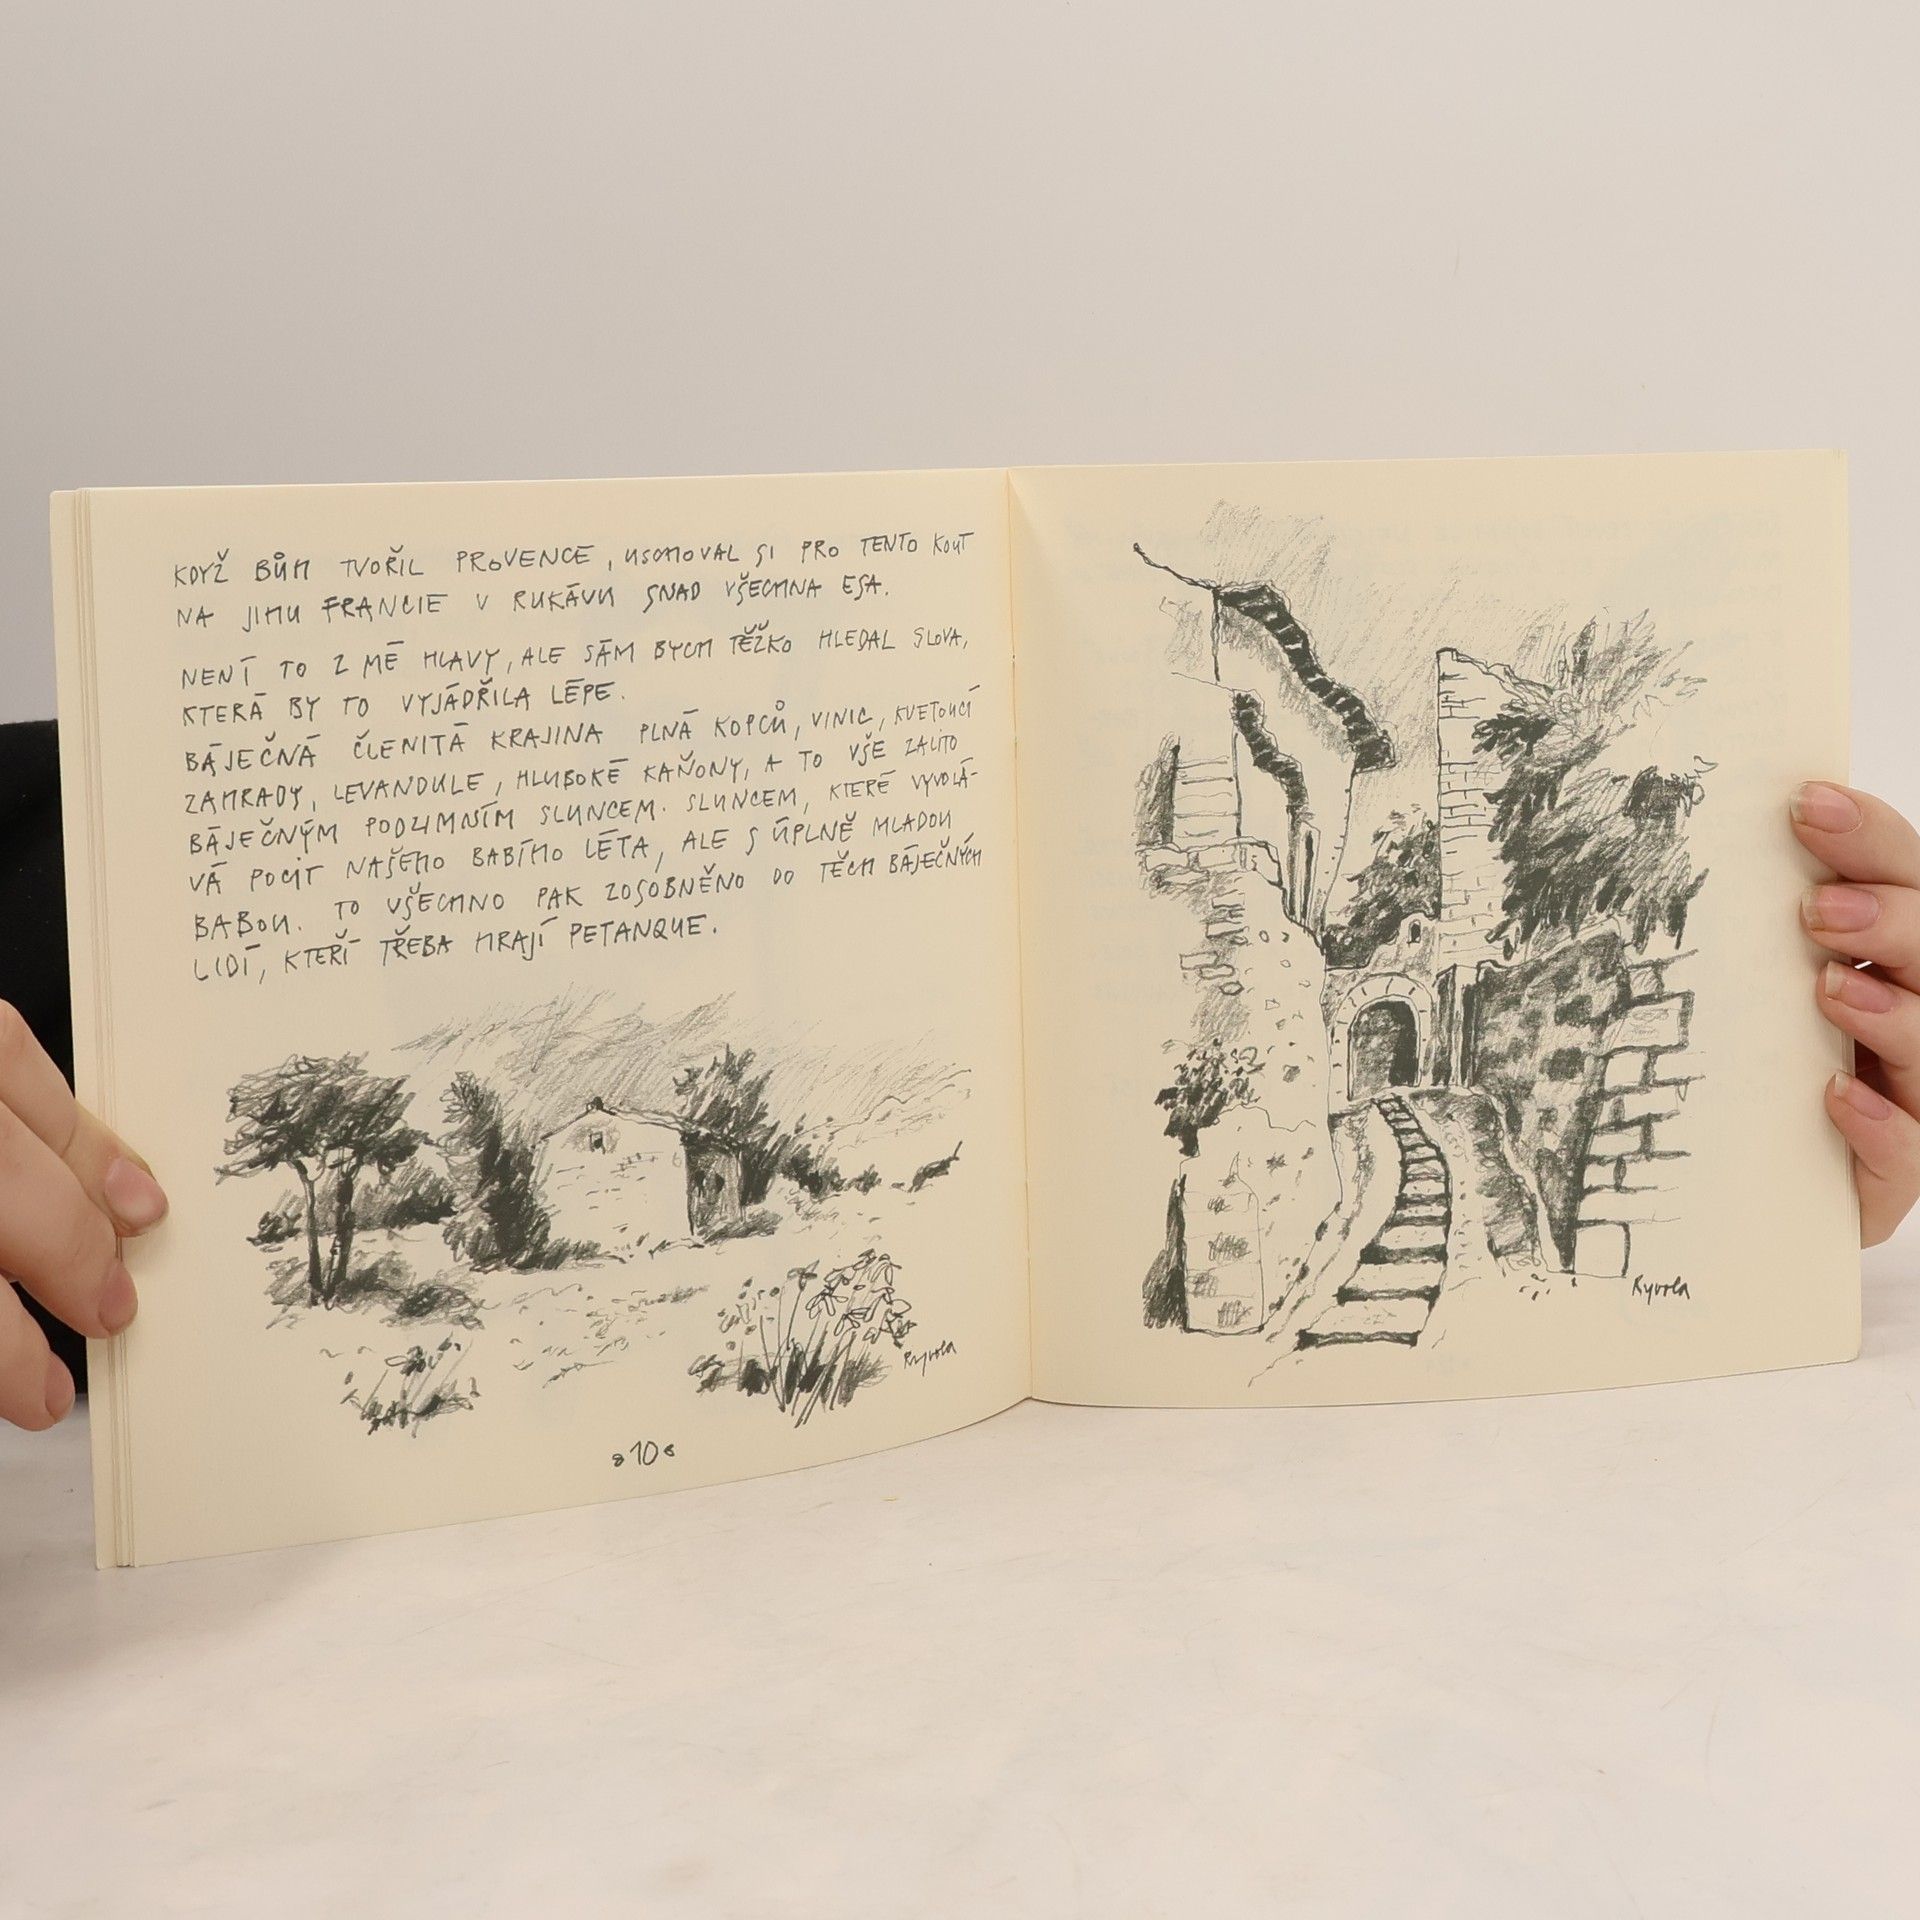 KDYŽ BŮH TVOŘIL PROVENCE, USCHOVAL SI PRO TENTO KOUT
NA JIHU FRANCIE V RUKÁVU SNAD VŠECHNA ESA.
NENÍ TO Z MÉ HLAVY, ALE SÁM BYCH TĚŽKO HLEDAL SLOVA,
KTERÁ BY TO VYJÁDŘILA LÉPE.
BÁJEČNÁ ČLENITÁ KRAJINA PLNÁ KOPCŮ, VINIC, KVETOUCÍ
ZAHRADY, LEVANDULE, HLUBOKÉ KAŇONY, A TO VŠE ZALITO
BÁJEČNÝM PODZIMNÍM SLUNCEM. SLUNCEM, KTERÉ VYVOLÁ-
VÁ POCIT NAŠEHO BABÍHO LÉTA, ALE S ÚPLNĚ MLADOU
BABOU. TO VŠECHNO PAK ZOSOBNĚNO DO TĚCH BÁJEČNÝCH
LIDÍ, KTEŘÍ TŘEBA HRAJÍ PETANQUE.
Ryvola
10
Ryvola